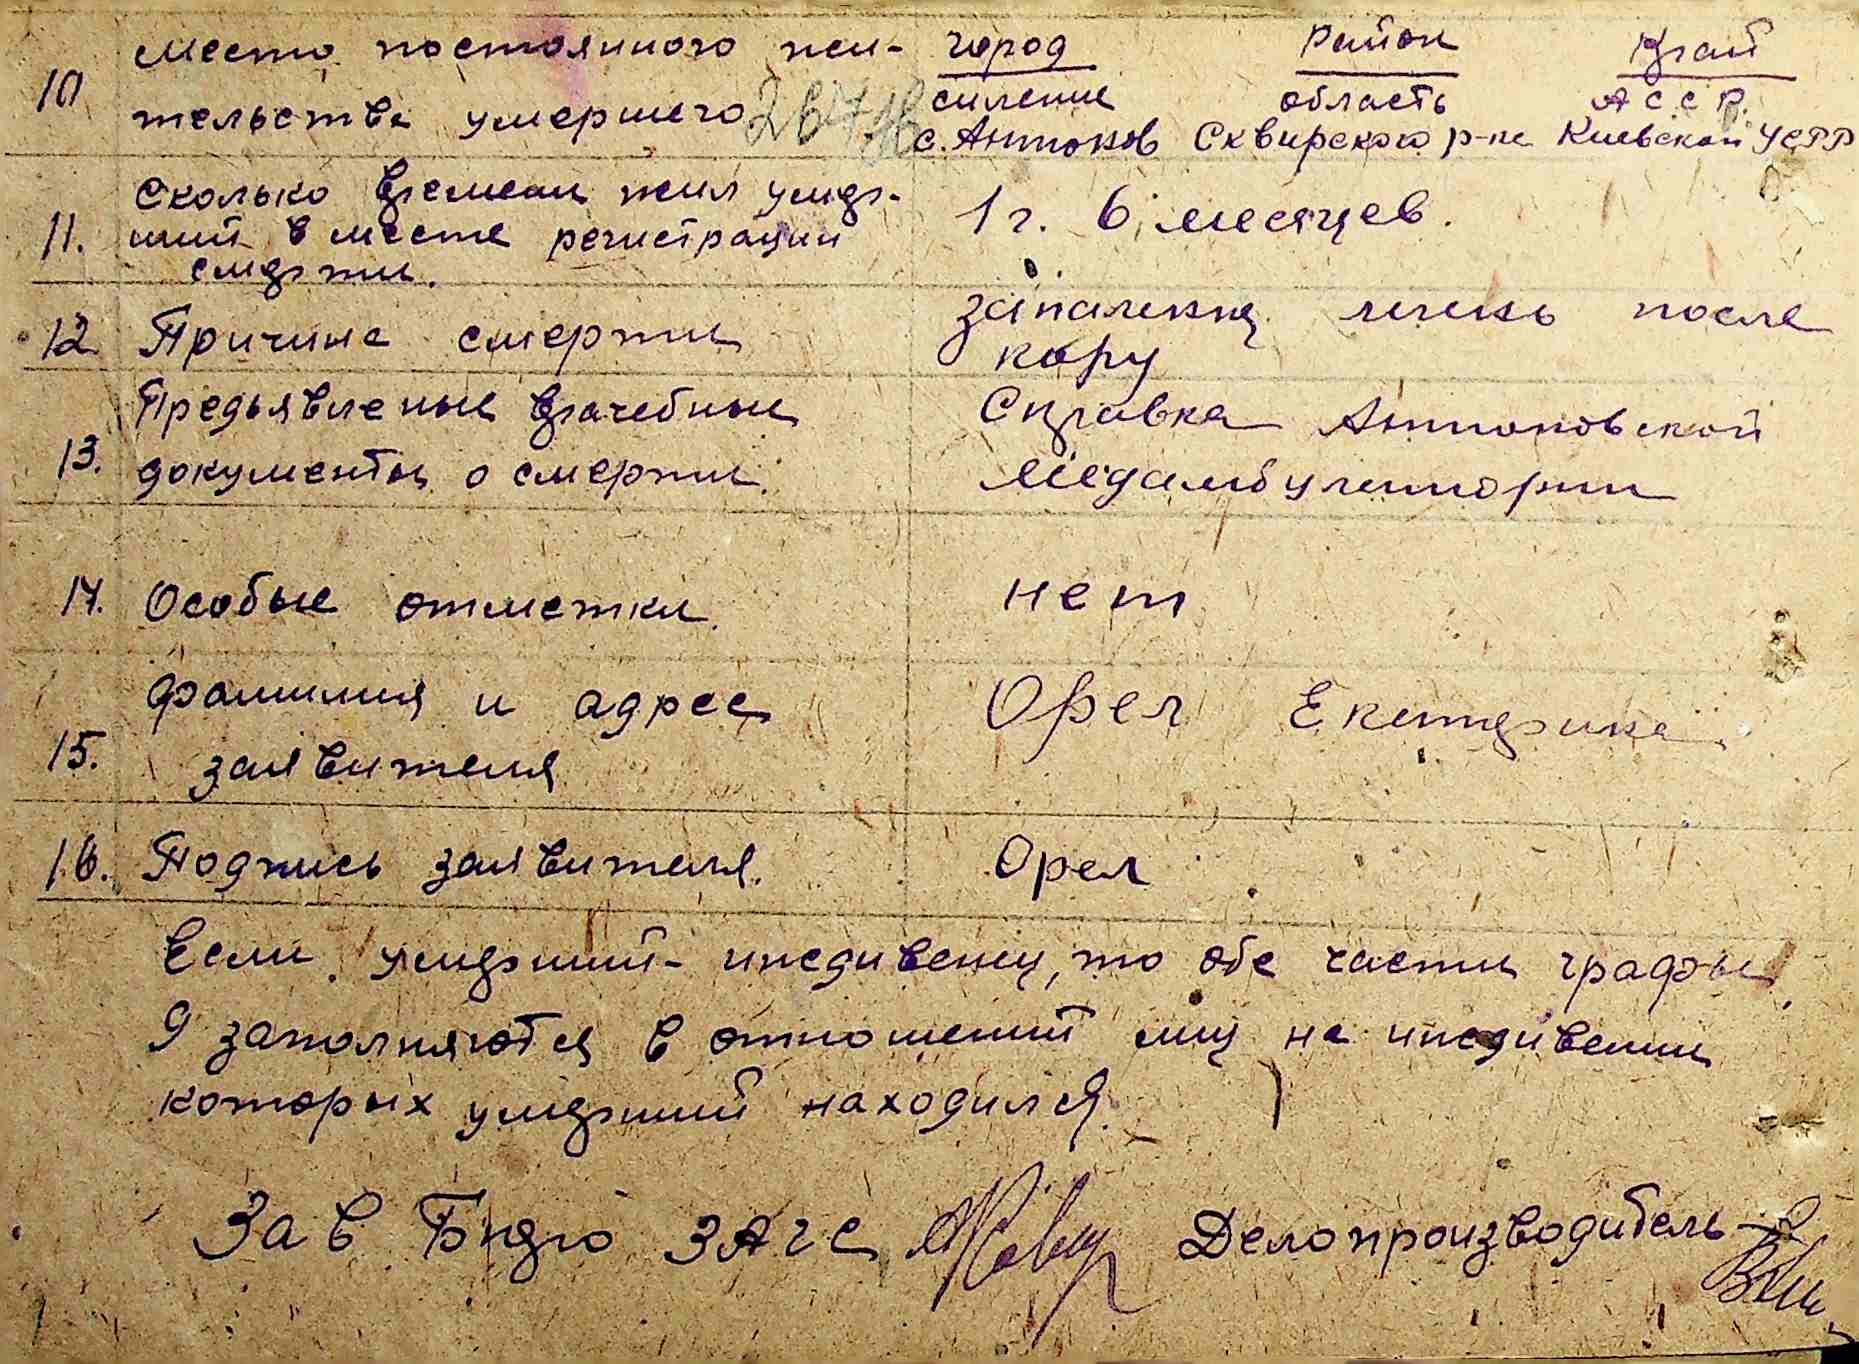 место постоянного жи- город район край
10 тельства умершего селение область АССР.
с. Антонов Сквирского р-на Киевской УСРР
сколько времени жил умер-
11. ший в месте регистрации 1 г. 6 месяцев.
смерти.
12 Причина смерти запалення легень после
кору
Предьявленые врачебные Справка Антоновской
13. документы о смерти. Медамбулатории
14. Особые отметки. нет
фамилия и адрес Орел Екатерина
15. заявителя
16. Подпись заявителя. Орел
Если умерший - иждивенец, то обе части графы
9 заполняются в отношении лиц на иждивении
которых умерший находился.
Зав Бюро ЗАГС Делопроизводитель